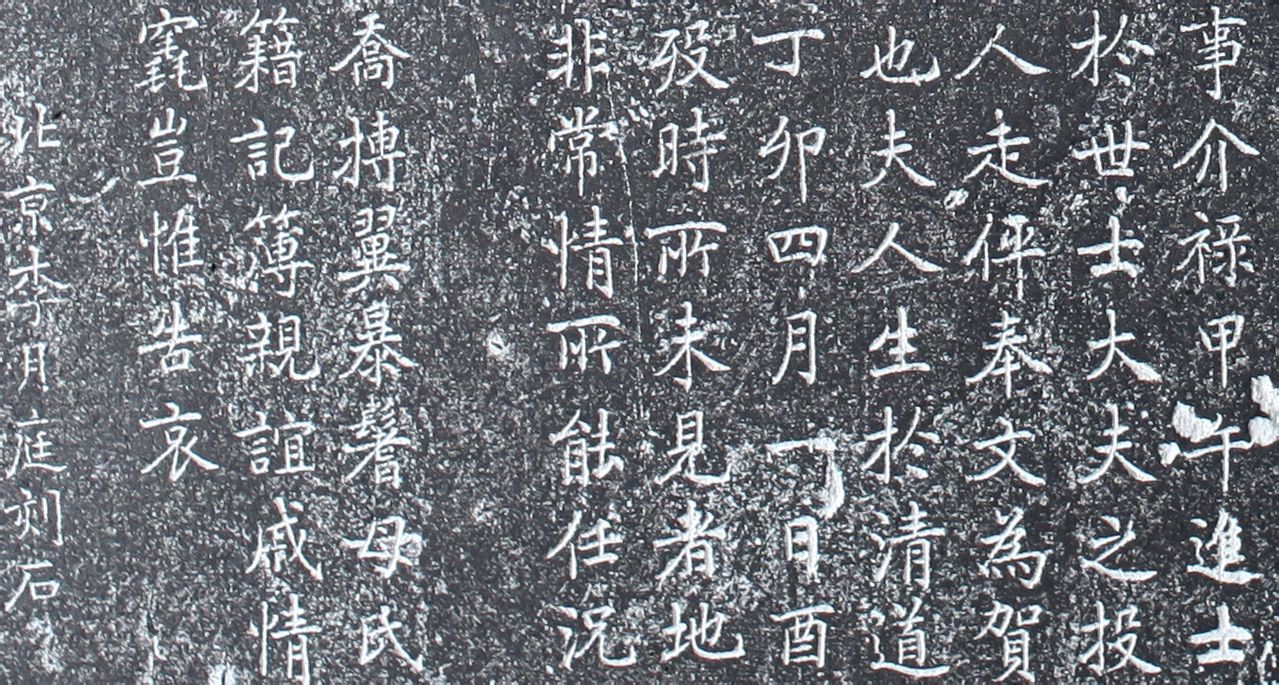 事介祿甲午進士
於世士大夫之投
人走伻奉文為賀
也夫人生於清道
丁卯四月一日酉
歿時所未見者地
非常情所能任況
喬摶翼暴鬐母氏
籍記簿親誼戚情
窀豈惟告哀
北京李月庭刻石